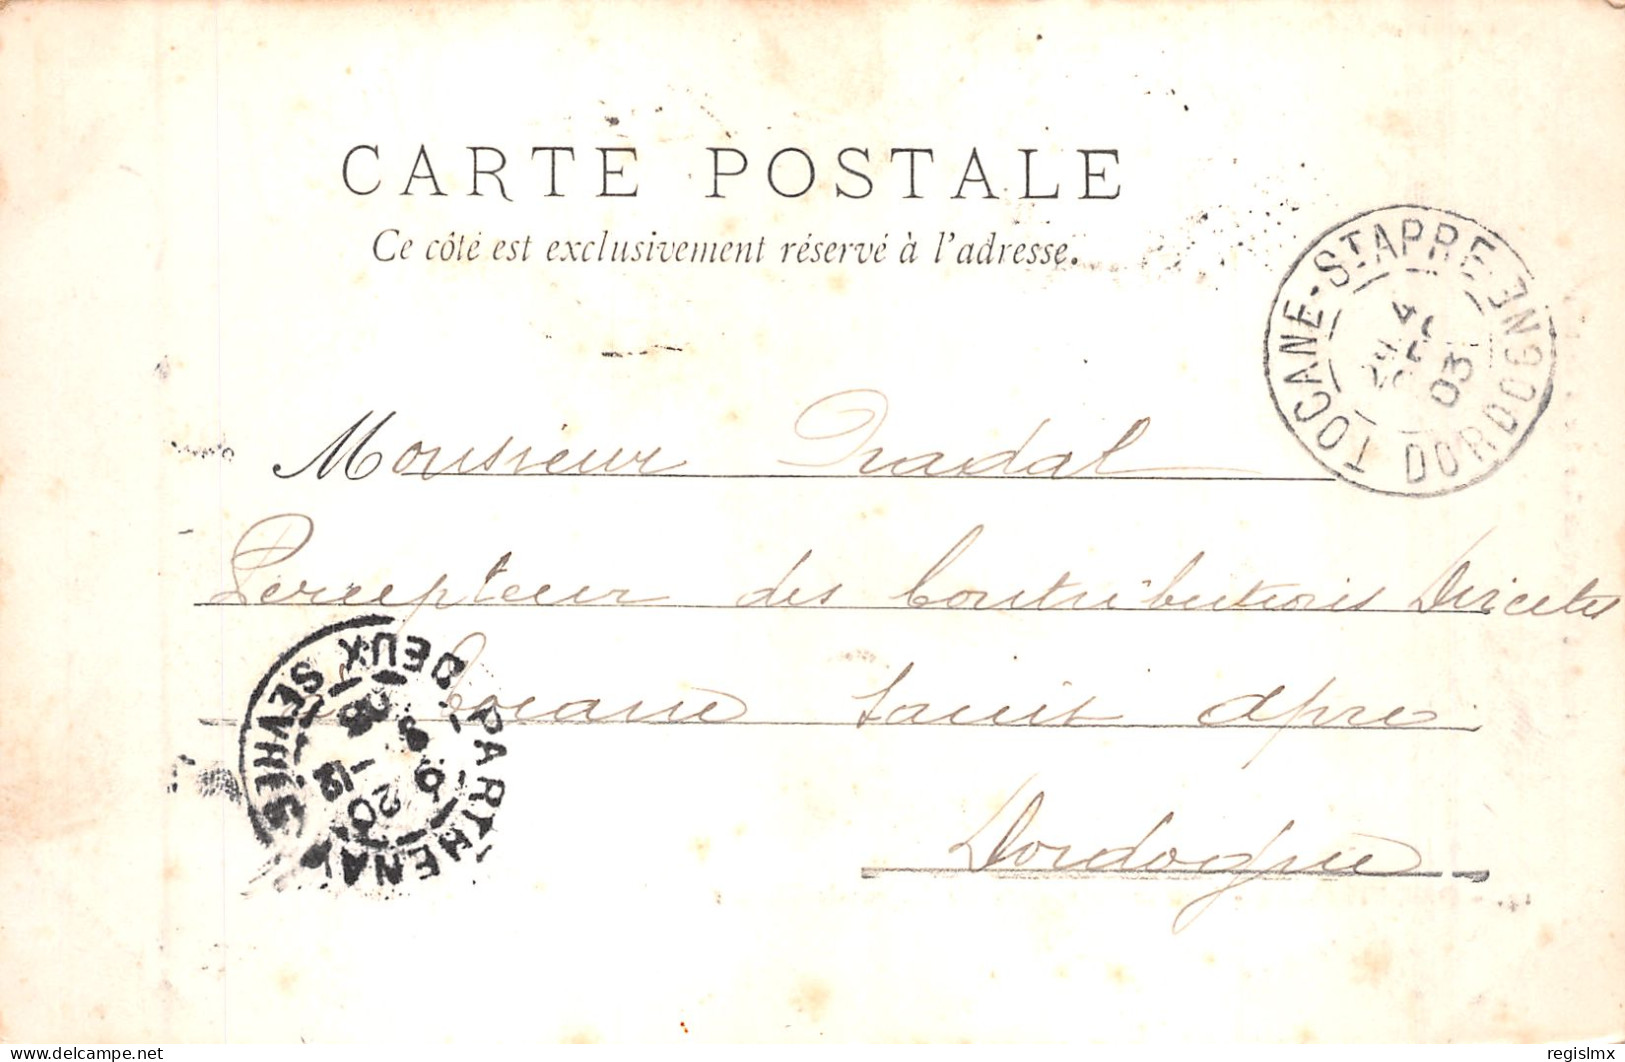 CARTE POSTALE
Ce côté est exclusivement réservé à l'adresse.
TOCANE-ST APRE DORDOGNE
03
Monsieur
Percepteur des Contributions Directes
Tocane Saint Apre
Dordogne
PARTHENAY DEUX SEVRES
20
12
delcampe.net
regislmx